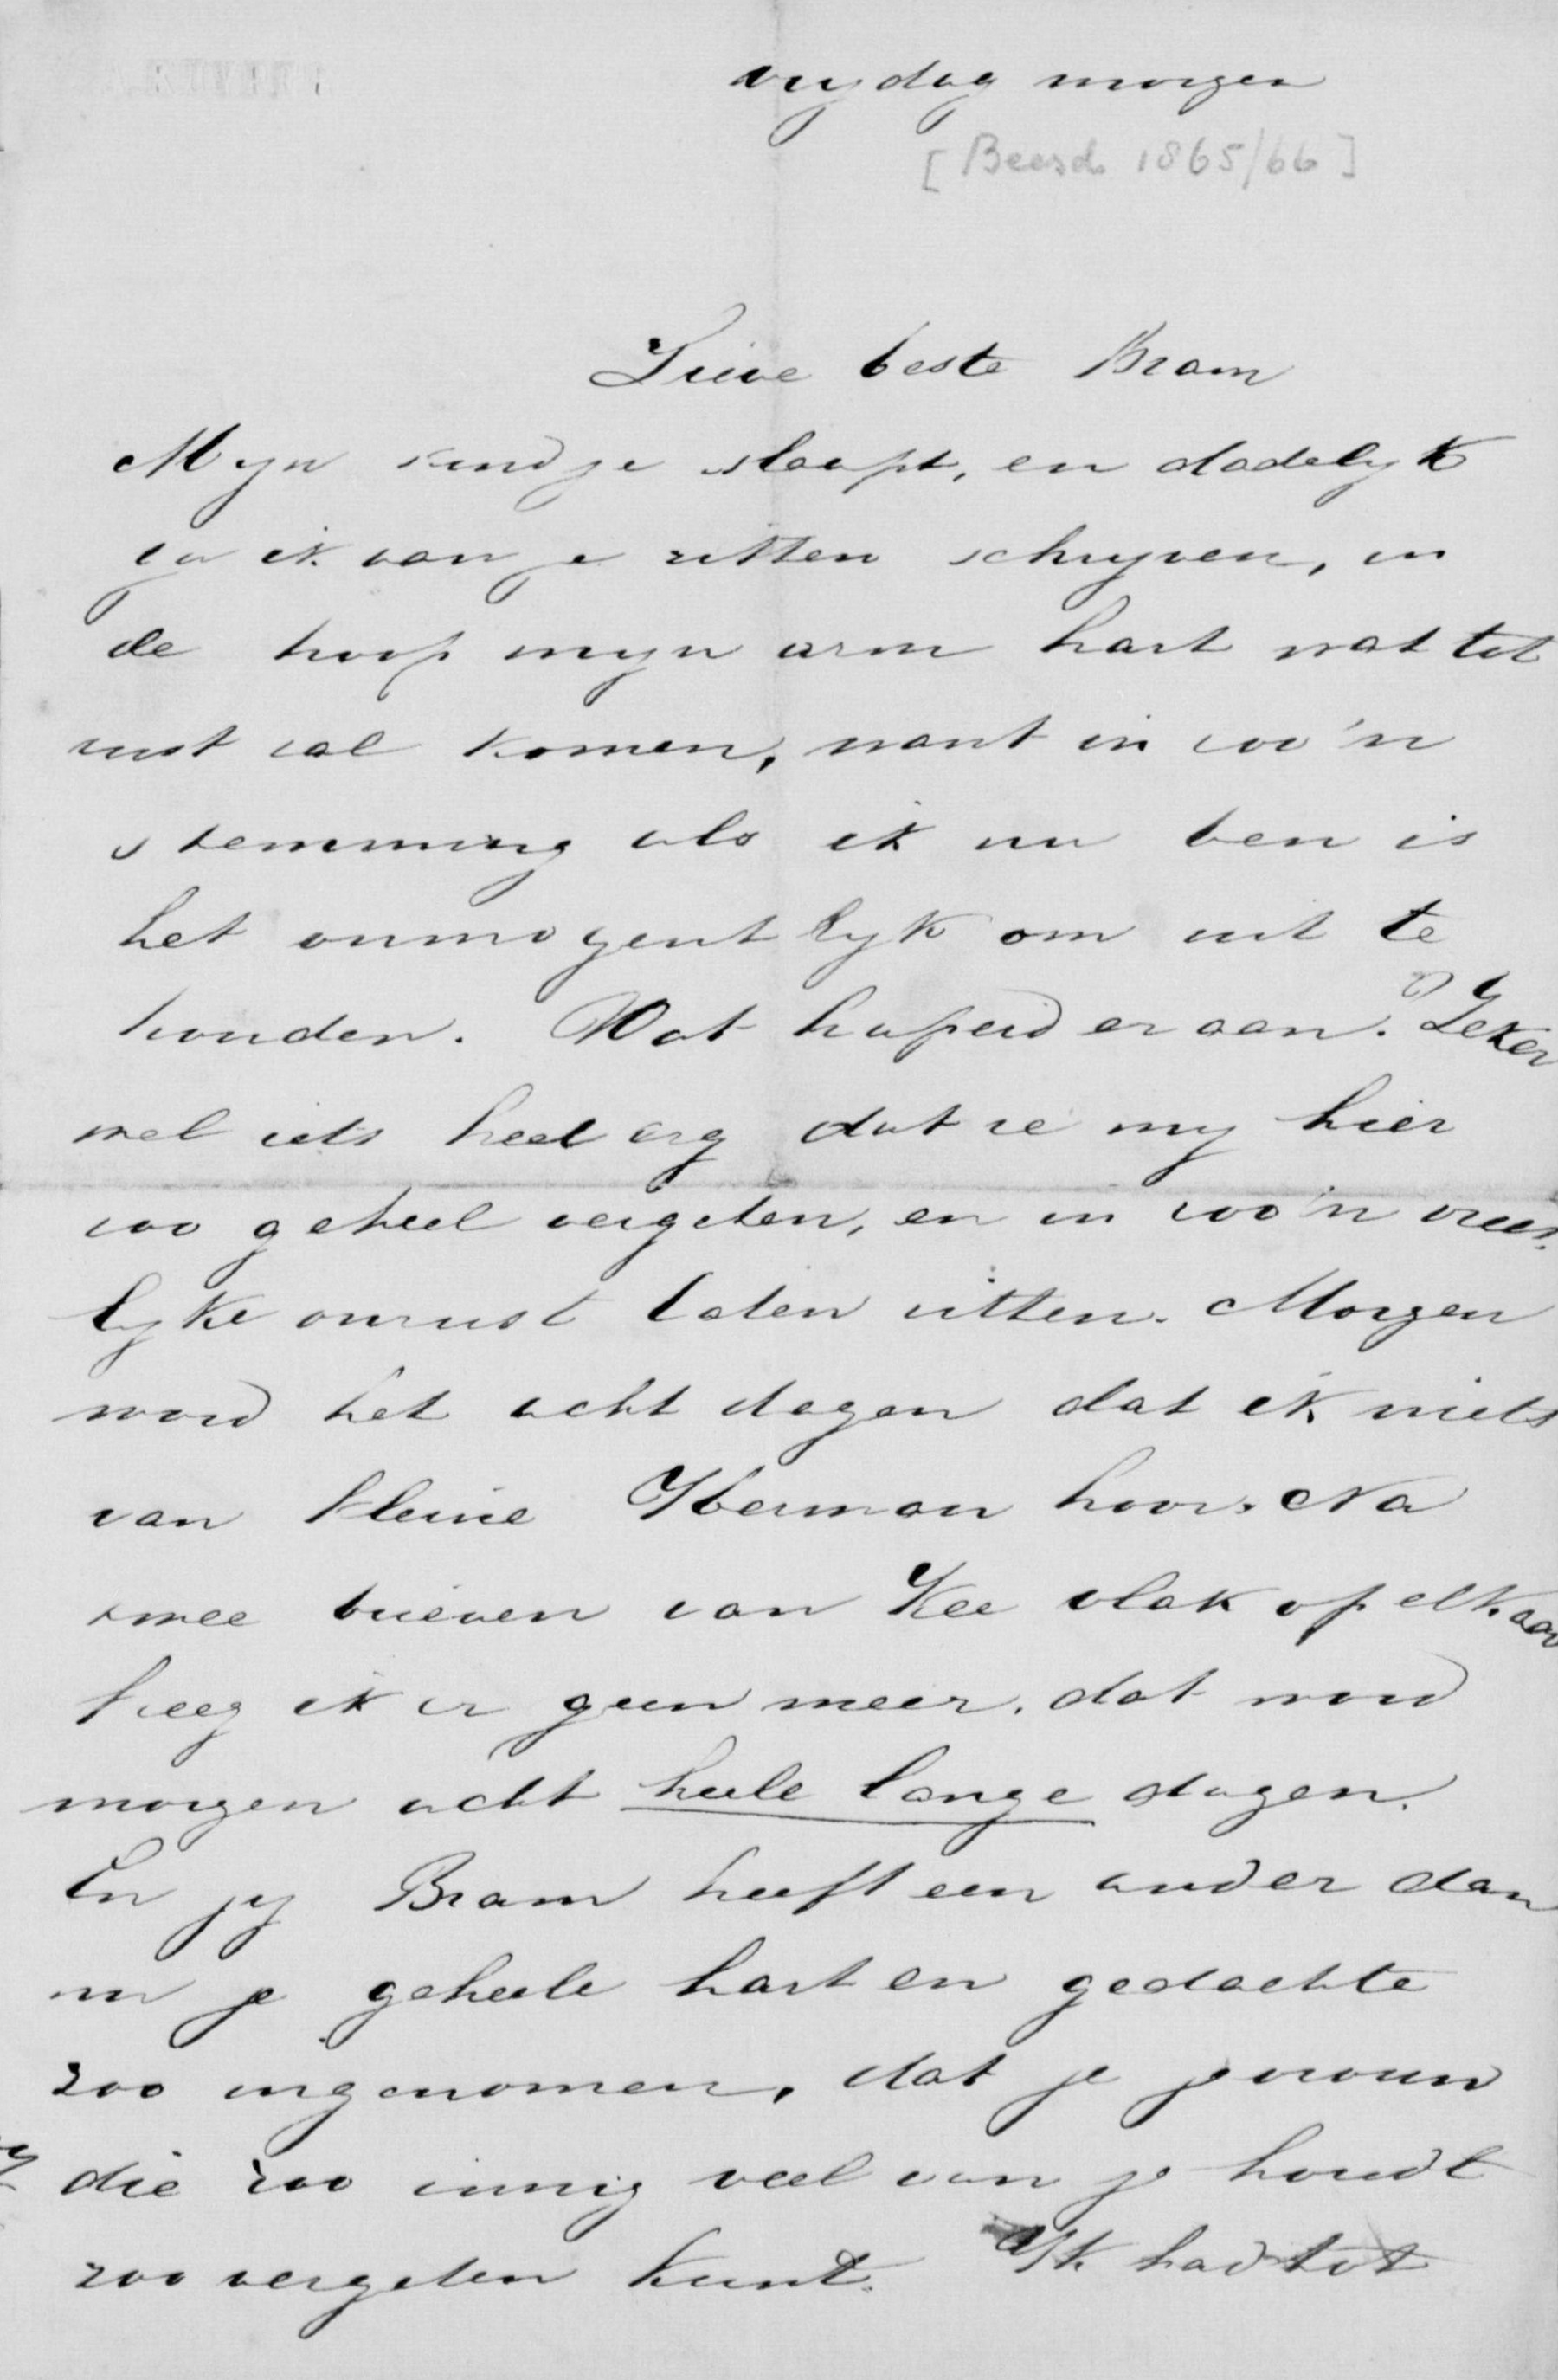 vrydag morgen
[Beesd 1865/66]
Lieve beste Bram
Myn kindje slaapt, en dadelyk
ga ik aan je zitten schryven, in
de hoop myn arm hart wat tot
rust zal komen, want in zoo'n
stemming als ik nu ben is
het onmogentlyk om uit te
houden. Wat haperd er aan? Zeker
wel iets heel erg dat ze my hier
zoo geheel vergeten, en in zoo'n vrees-
lyke onrust laten zitten. Morgen
word het acht dagen dat ik niets
van kleine Herman hoor. Na
twee brieven van Kee vlak op elkaar
kreeg ik er geen meer. dat word
morgen acht heele lange dagen.
En jy Bram heeft een ander dan
nu je geheele hart en gedachte
zoo ingenomen, dat je je vrouw
die zoo innig veel van je houdt
zoo vergeten kunt. Ik had tot